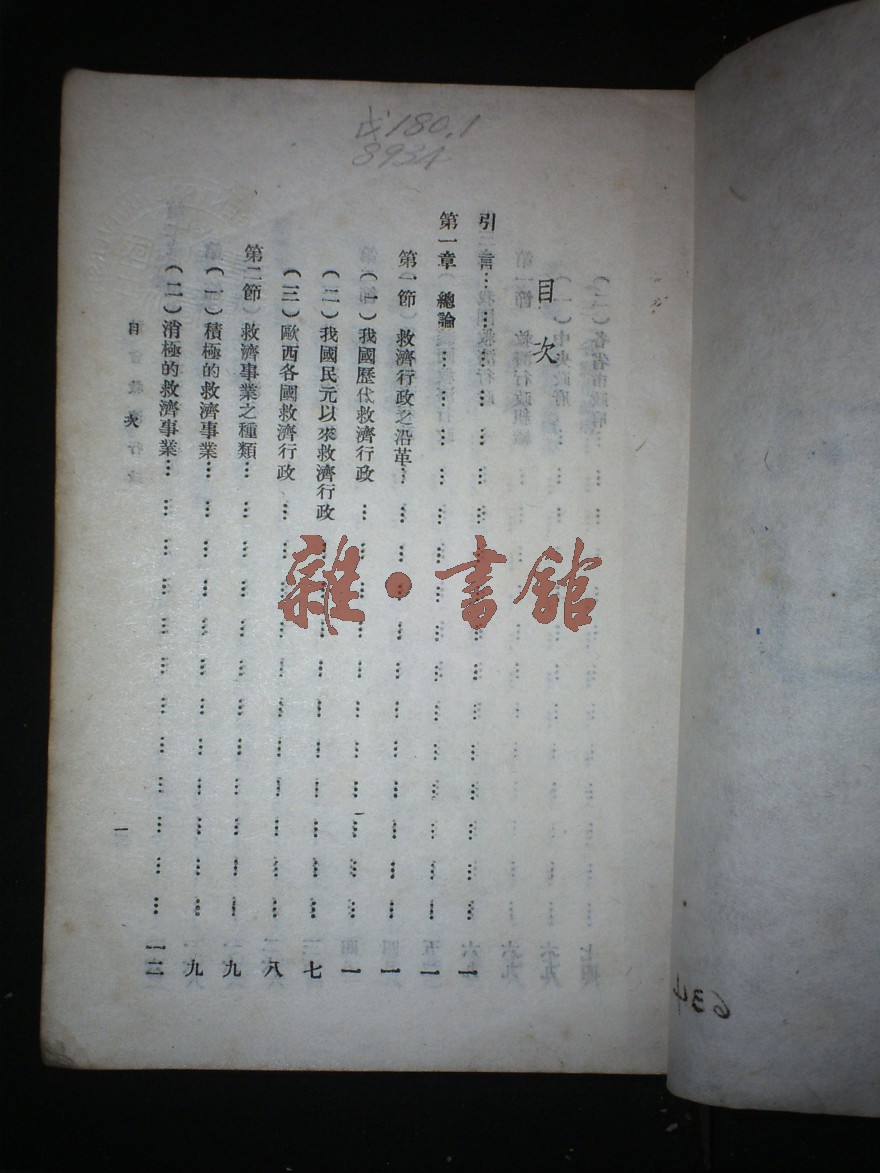 180.1
8934
目次
引言……………………………………一
第一章 總論……………………………………一
第一節 救濟行政之沿革……………………………………一
(一)我國歷代救濟行政……………………………………一
(二)我國民元以來救濟行政……………………………………七
(三)歐西各國救濟行政……………………………………八
第二節 救濟事業之種類……………………………………九
(一)積極的救濟事業……………………………………九
(二)消極的救濟事業……………………………………一二
目次
一
雜·書館